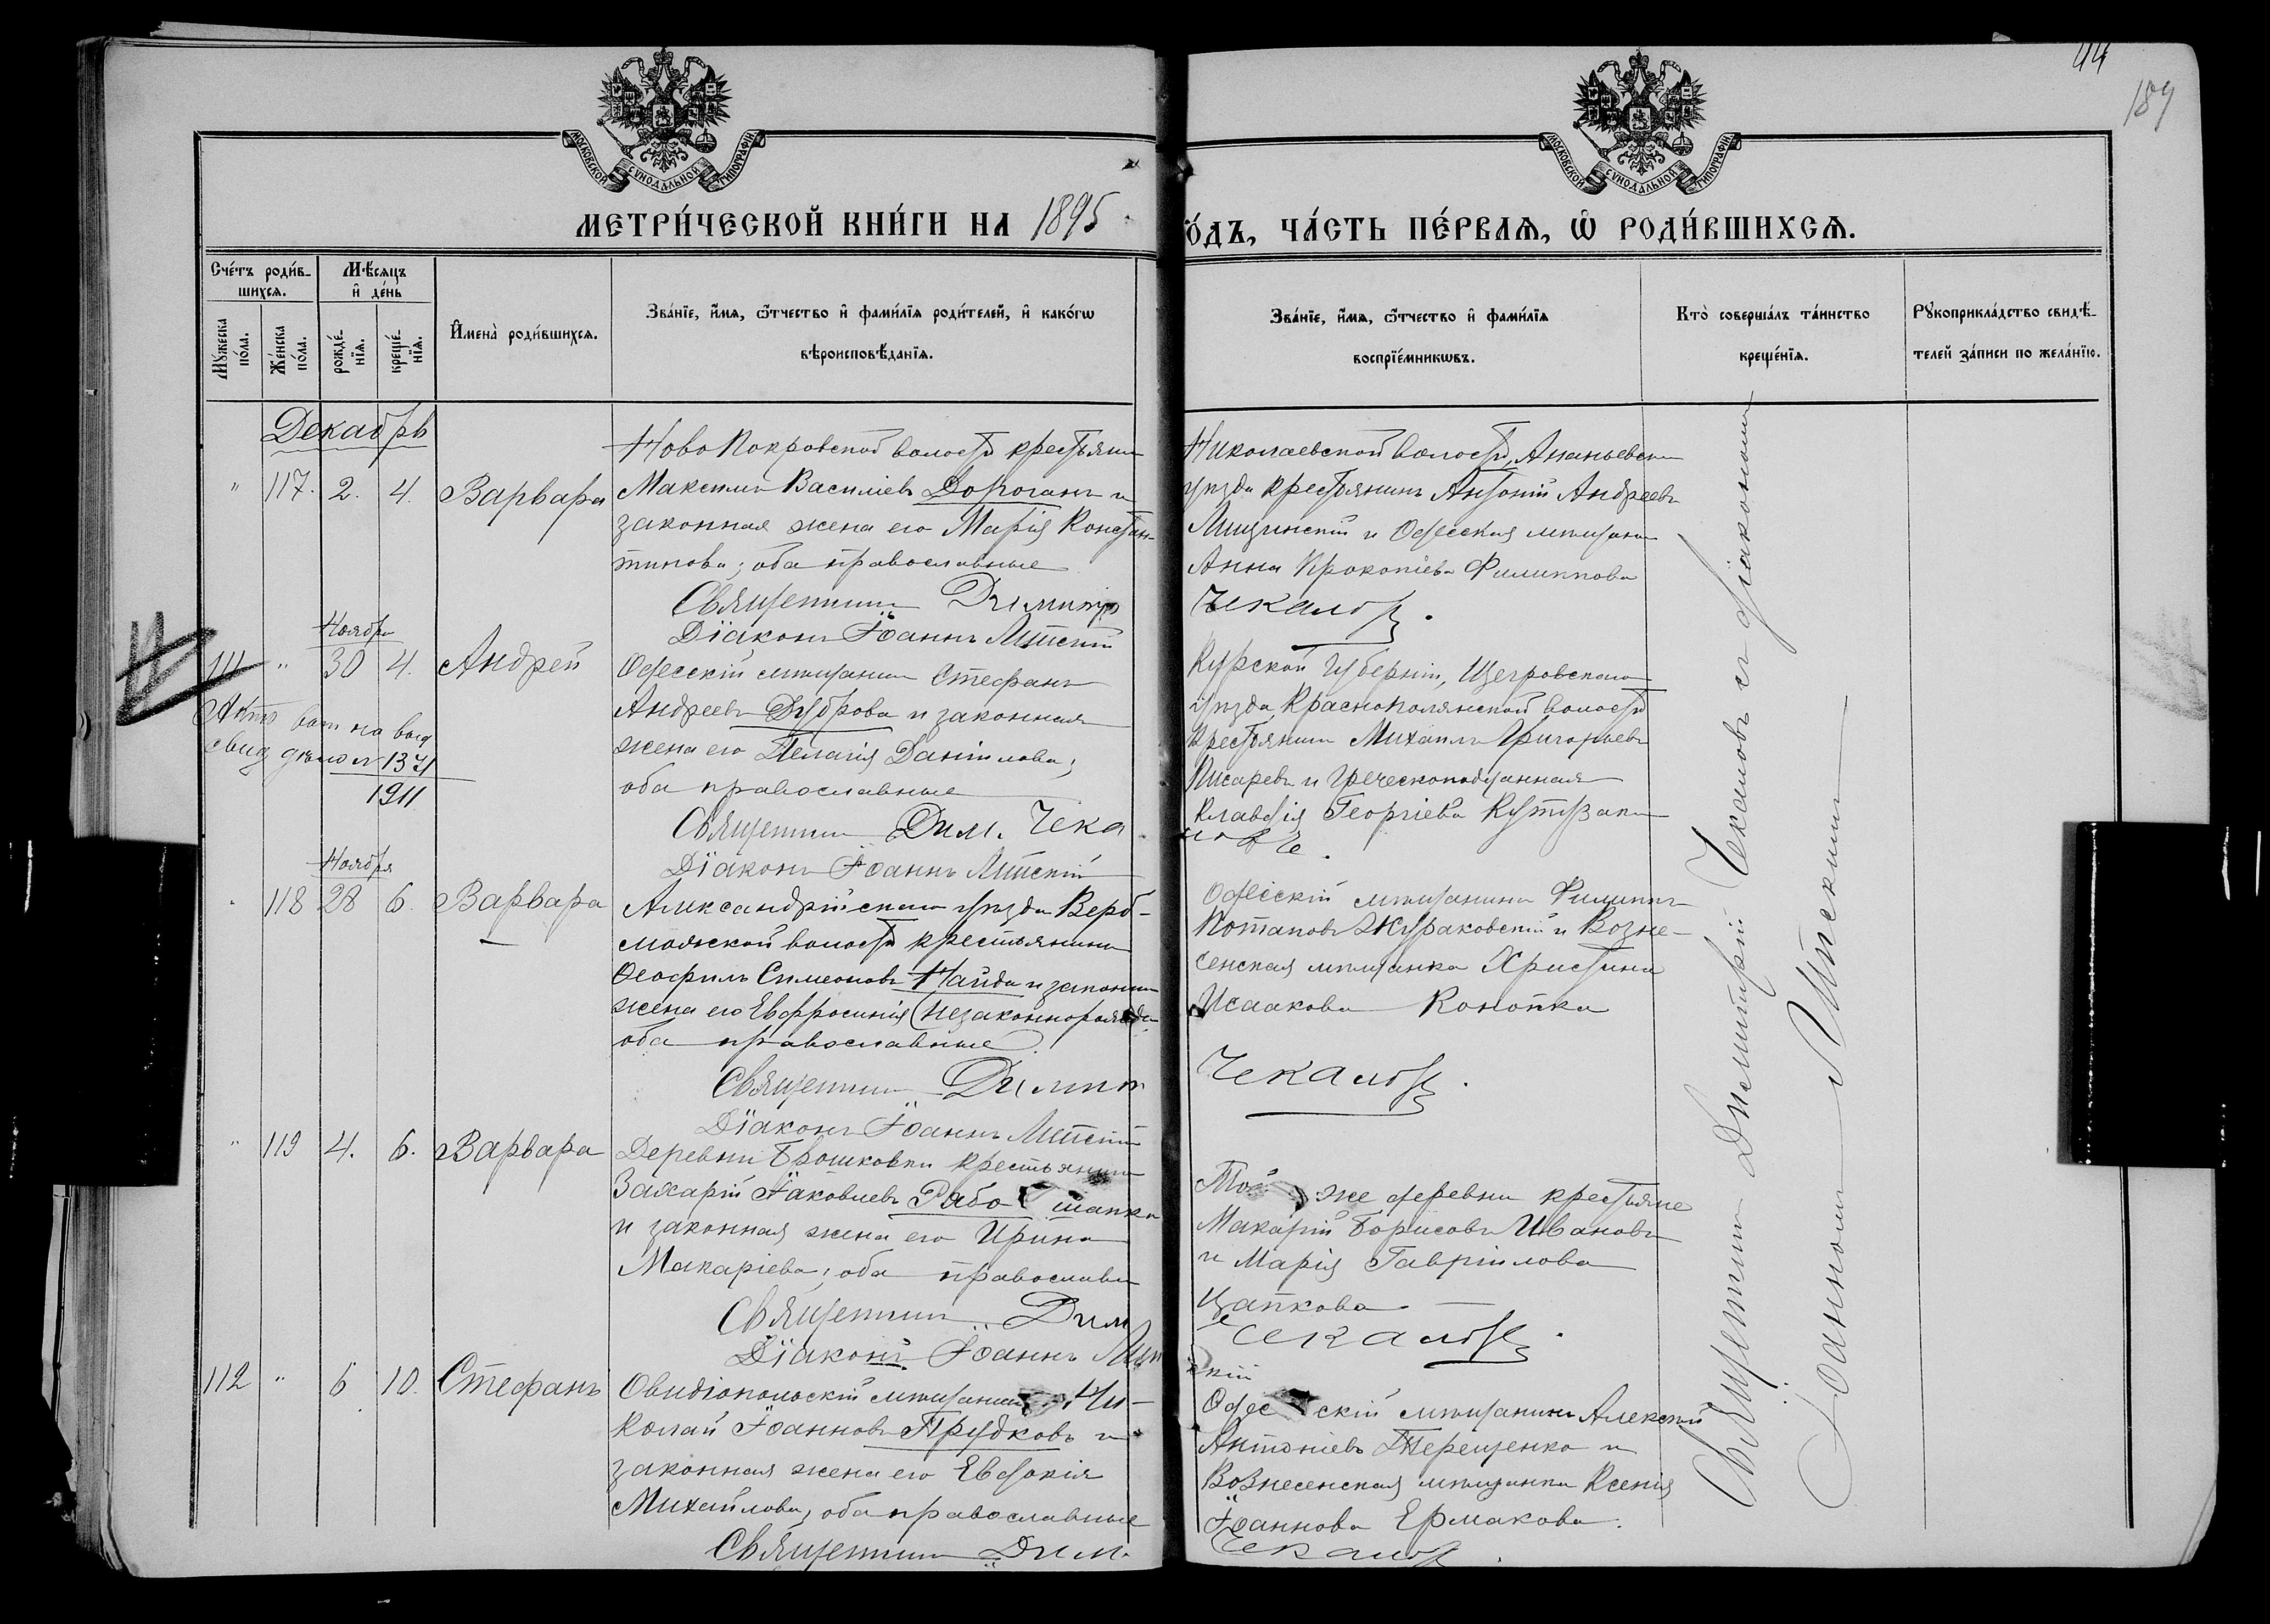 44
189
МОСКОВСКОЙ СѴНОДАЛЬНОЙ ТИПОГРАФІИ
МОСКОВСКОЙ СѴНОДАЛЬНОЙ ТИПОГРАФІИ
МЕТРИ́ЧЕСКОЙ КНИ́ГИ НА 1895
ГО́ДЪ, ЧА́СТЬ ПЕ́РВАѦ, Ѡ҆ РОДИ́ВШИХСѦ.
Сче́тъ роди́в-
шихсѧ.
Мꙋ́жеска по́ла.
Же́нска по́ла.
Мѣ́сяцъ
и҆ де́нь
рожде́-
нїѧ.
креще́-
нїѧ.
И҆мена̀ роди́вшихсѧ.
Зва́нїе, и҆́мѧ, ѻ҆́тчество и҆ фами́лїѧ роди́телей, и҆ како́гѡ
вѣроисповѣ́данїѧ.
Зва́нїе, и҆́мѧ, ѻ҆́тчество и҆ фами́лїѧ
воспрїе́мникѡвъ.
Кто̀ соверша́лъ та́инство
креще́нїѧ.
Рꙋкоприкла́дство свидѣ́-
телей за́писи по жела́нїю.
Декабрь
" 117. 2. 4. Варвара
Ново Покровской волости крестьянин
Максим Василіевъ Дороганъ и
законная жена его Марія Констан-
тинова; оба православные
Священникъ Димитр
Діаконъ Іоаннъ Липскій
Николаевской волости, Ананьевскаго
уѣзда крестьянинъ Антоній Андреевъ
Лищинскій и Одесская мѣщанка
Анна Прокопіева Филиппова
Чекаловъ.
Ноября
111 " 30 4. Андрей
Одесскій мѣщанинъ Стефанъ
Андреевъ Дуброва и законная
жена его Пелагія Даніилова;
оба православные
Священникъ Дим. Чека
Діаконъ Іоаннъ Липскій
1371
1911
Курской губерніи, Щегровскаго
уѣзда, Краснополянской волости
крестьянинъ Михаилъ Григорьевъ
Писаревъ и греческоподданная
Клавдія Георгіева Кутузаки
ловъ.
Ноября
118 28 6. Варвара
Александрійскаго уѣзда Верб-
можской волости крестьянинъ
Ѳеофилъ Симеоновъ Найда и законная
жена его Евфросинія (незаконнорожде
оба православные
Священникъ Димит
Діаконъ Іоаннъ Липскій
Одесскій мѣщанинъ Филиппъ
Потаповъ Жураковскій и Возне-
сенская мѣщанка Христина
Исаакова Конопка
Чекаловъ.
" 119 4. 6. Варвара
Деревни Брошковки крестьянинъ
Захарій Іаковлевъ Рабо шапка
и законная жена его Ирина
Макаріева; оба православн
Священникъ Дим
Діаконъ Іоаннъ Лип
Той же деревни крестьяне
Макарій Борисовъ Ивановъ
и Марія Гавріилова
Цапкова
Чекаловъ.
скій
112 " 6 10. Стефанъ
Овидіопольскій мѣщанинъ Ни-
колай Іоанновъ Прудковъ и
законная жена его Евдокія
Михайлова, оба православные
Священникъ Дим.
Одесскій мѣщанинъ Алексѣй
Антоніевъ Терещенко и
Вознесенская мѣщанка Ксенія
Іоаннова Ермакова.
Чекаловъ.
Священникъ Димитрій Чекаловъ съ діакономъ
Іоанномъ Липскимъ